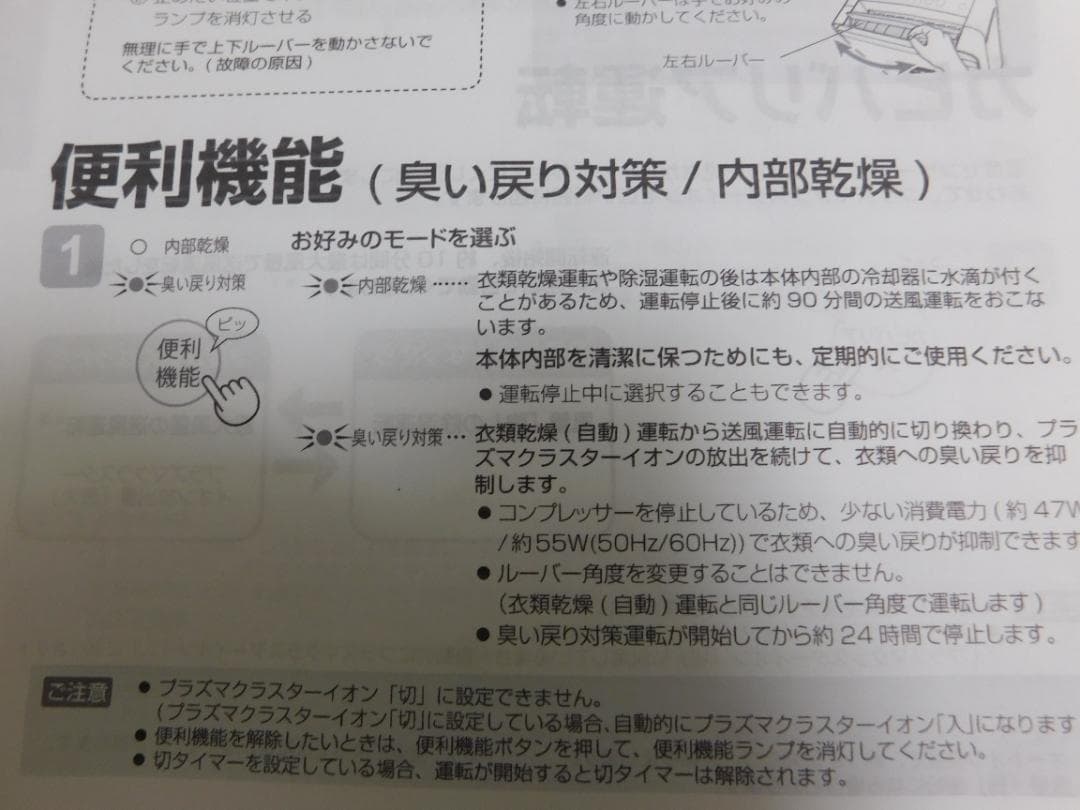 ランプを消灯させる
無理に手で上下ルーバーを動かさないで
ください。(故障の原因)
● 左右ルーバーは手でお好みの
角度に動かしてください。
左右ルーバー
便利機能 ( 臭い戻り対策 / 内部乾燥 )
1
○ 内部乾燥
臭い戻り対策
ピッ
便利
機能
お好みのモードを選ぶ
内部乾燥 ……
衣類乾燥運転や除湿運転の後は本体内部の冷却器に水滴が付く
ことがあるため、運転停止後に約 90 分間の送風運転をおこな
います。
本体内部を清潔に保つためにも、定期的にご使用ください。
● 運転停止中に選択することもできます。
臭い戻り対策 …
衣類乾燥 ( 自動 ) 運転から送風運転に自動的に切り換わり、プラ
ズマクラスターイオンの放出を続けて、衣類への臭い戻りを抑
制します。
● コンプレッサーを停止しているため、少ない消費電力 ( 約 47W
/ 約 55W(50Hz/60Hz)) で衣類への臭い戻りが抑制できます
● ルーバー角度を変更することはできません。
(衣類乾燥 ( 自動 ) 運転と同じルーバー角度で運転します )
● 臭い戻り対策運転が開始してから約 24 時間で停止します。
ご注意
● プラズマクラスターイオン「切」に設定できません。
(プラズマクラスターイオン「切」に設定している場合、自動的にプラズマクラスターイオン「入」になります
● 便利機能を解除したいときは、便利機能ボタンを押して、便利機能ランプを消灯してください。
● 切タイマーを設定している場合、運転が開始すると切タイマーは解除されます。